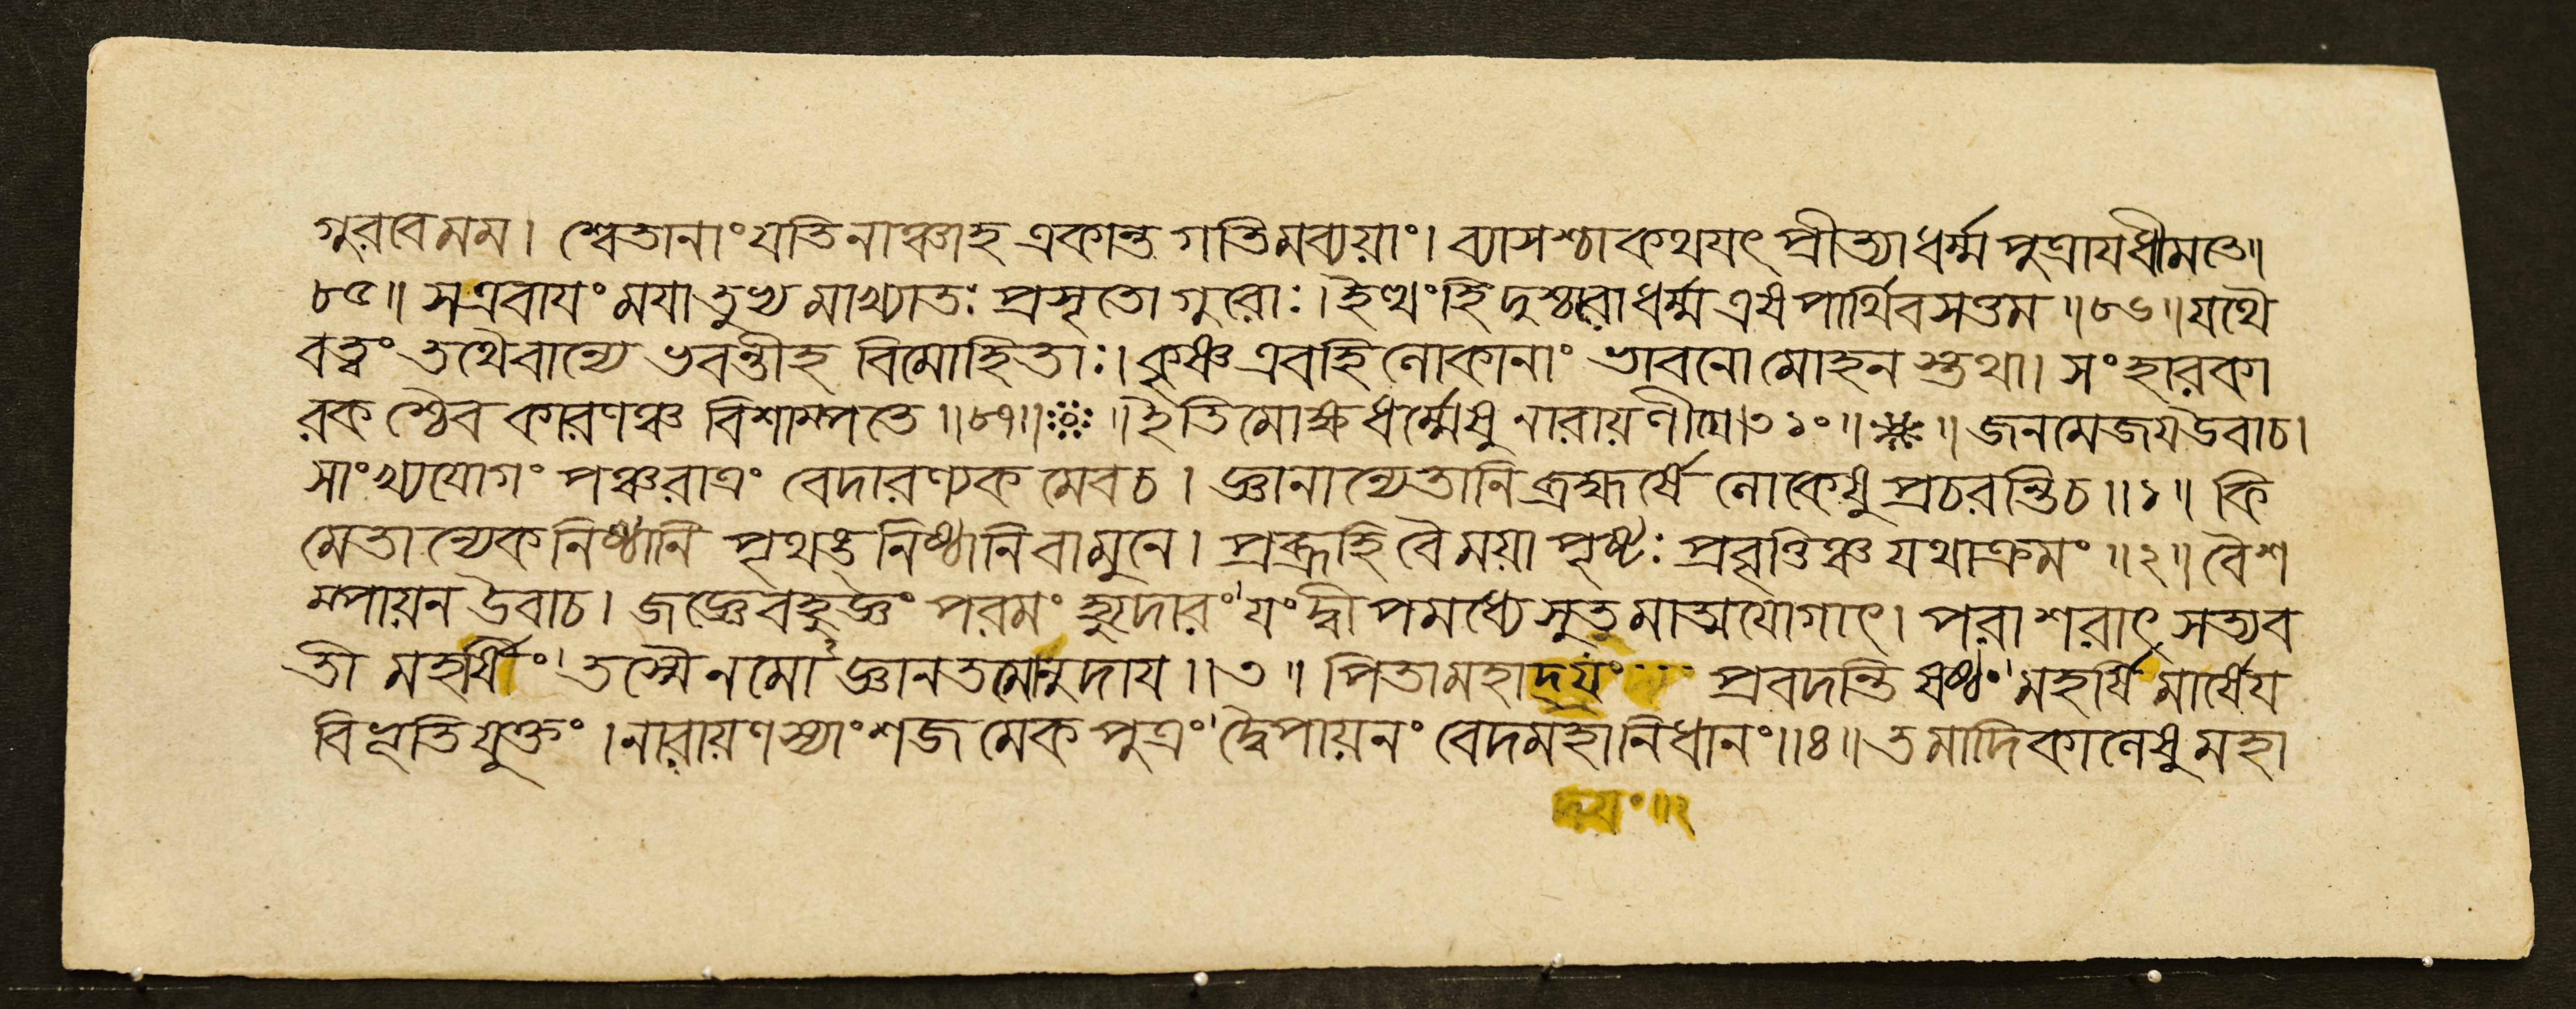 গুরবে মম। শ্বেতানাং যতিনাঞ্চাহ একান্ত গতিমব্যয়াং। ব্যাসশ্চাকথযৎ প্রীত্যা ধর্ম্ম পুত্রায ধীমতে॥
৮৫॥ সএবাযং ময়া তুভ্য মাখ্যাতঃ প্রসৃতো গুরোঃ। ইত্থং হি দুশ্চরো ধর্ম্ম এষ পার্থিবসত্তম॥৮৬॥ যথৈ
বত্বং তথৈবান্যে ভবন্তীহ বিমোহিতাঃ। কৃষ্ণ এবহি লোকানাং ভাবনো মোহন স্তথা। সংহারকা
রক শ্চৈব কারণঞ্চ বিশাম্পতে॥৮৭॥ ॥ইতি মোক্ষধর্ম্মেষু নারায়ণীযে।৩১০॥ ॥ জনমেজযউবাচ।
সাংখ্যযোগং পঞ্চরাত্রং বেদারণ্যক মেবচ। জ্ঞানান্যেতানি ব্রহ্মর্ষে লোকেষু প্রচরন্তিচ॥১॥ কি
মেতান্যেকনিষ্ঠানি পৃথঙ্নিষ্ঠানি বামুনে। প্রব্রূহি বৈ ময়া পৃষ্টঃ প্রবৃত্তিঞ্চ যথাক্রমং॥২॥ বৈশ
ম্পায়ন উবাচ। জজ্ঞে বহুজ্ঞং পরমং হ্যুদারং যং দ্বীপমধ্যে সুত মাত্মযোগাৎ। পরাশরাৎ সত্যব
তী মহর্ষিং তস্মৈ নমো জ্ঞানতমোনুদায॥৩॥ পিতামহাদ্যং প্রবদন্তি ষষ্ঠং মহর্ষি মার্ষেয
বিভূতিযুক্তং। নারায়ণস্যাংশজ মেকপুত্রং দ্বৈপায়নং বেদমহানিধানং॥৪॥ তমাদিকালেষু মহা
দ্যং॥২